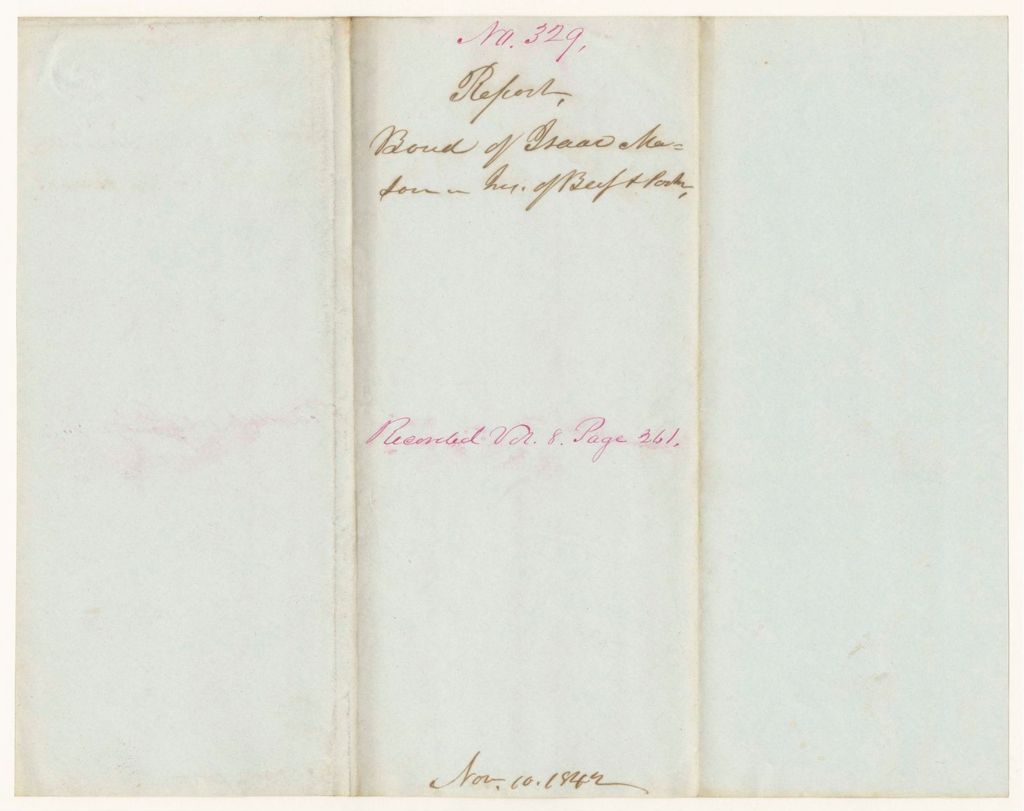 No. 329,
Report,
Bond of Isaac Ma=
son – Ins. of Beef & Pork,
Recorded Vol. 8. Page 261.
Nov. 10. 1842